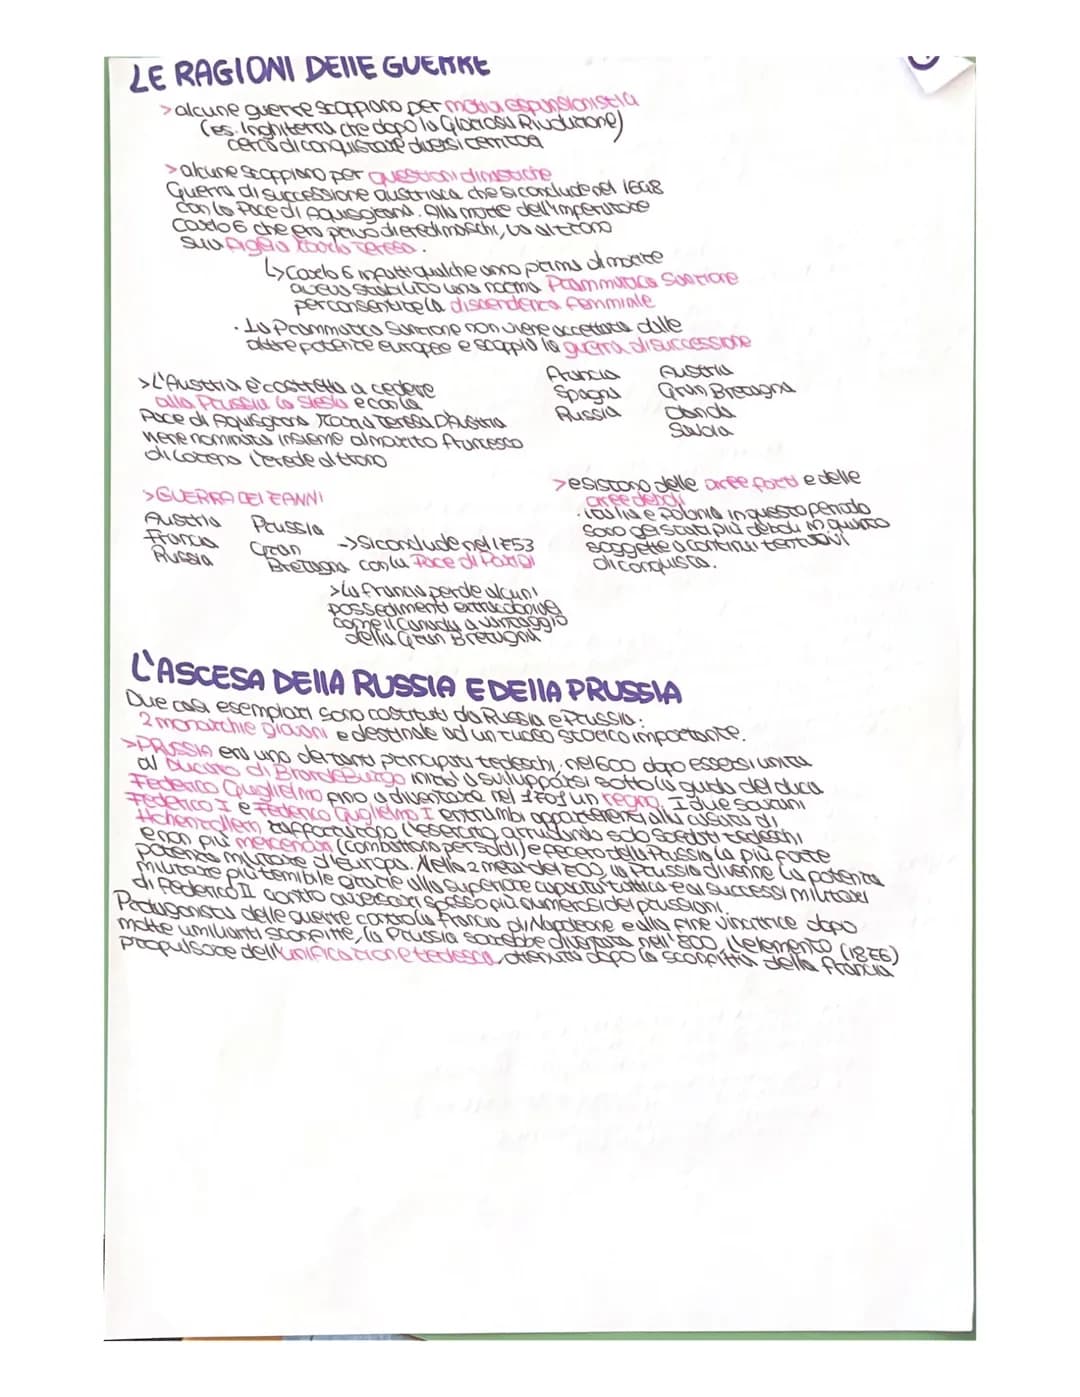 LE RAGIONI DEllE GUERRE
> alcune guerre scoppiano per motivi espansionistici
(es. Inghilterra che dopo la Gloriosa Rivoluzione)
cerca di conquistare diversi territori
> alcune scoppiano per questioni dinastiche
Guerra di successione austriaca che si conclude nel 1648
con la Pace di Aquisgrana. Alla morte dell'Imperatore
Carlo 6 che era privo di eredi maschi, va al trono
sua figlia Maria Teresa.
↳> Carlo 6 infatti qualche anno prima di morire
aveva stabilito una norma Prammatica Sanzione
per consentire la discendenza femminile
· La Prammatica Sanzione non viene accettata dalle
altre potenze europee e scoppia la guerra di successione
Francia Austria
Spagna Gran Bretagna
Russia Olanda
Savoia
> L'Austria è costretta a cedere
alla Prussia la Slesia e con la
Pace di Aquisgrana Maria Teresa D'Austria
viene nominata insieme al marito Francesco
di Lorena l'erede al trono
> GUERRA DEI 7 ANNI
Austria Prussia
Francia Gran
Russia Bretagna
-> Si conclude nel 1753
con la Pace di Parigi
> la Francia perde alcuni
possedimenti
come il Canada a vantaggio
della Gran Bretagna
> esistono delle aree forti e delle
aree deboli
· Italia e Polonia in questo periodo
sono gli stati più deboli in quanto
soggette a continui tentativi
di conquista.
L'ASCESA DEllA RUSSIA E DEllA PRUSSIA
Due casi esemplari sono costituti da Russia e Prussia:
2 monarchie giovani e destinate ad un ruolo storico importante.
> PRUSSIA era uno dei tanti principati tedeschi, nel 600 dopo essersi unita
al Ducato di Brandeburgo iniziò a svilupparsi sotto la guida del duca
Federico Guglielmo fino a diventare nel 1701 un regno. I due sovrani
Federico I e Federico Guglielmo I entrambi appartenenti alla casata di
Hohenzollern rafforzarono l'esercito arruolando solo soldati tedeschi
e non più mercenari (combattono per soldi) e fecero della Prussia la più forte
potenza militare d'europa. Nella 2 metà del 700, la Prussia divenne la potenza
militare più temibile grazie alla superiore capacità tattica e ai successi militari
di Federico II contro avversari spesso più numerosi dei prussiani.
Protagonista delle guerre contro la Francia di Napoleone e alla fine vincitrice dopo
molte umilianti sconfitte, la Prussia sarebbe diventata nell'800 l'elemento
propulsore dell'unificazione tedesca, ottenuta dopo la sconfitta della Francia (1876)